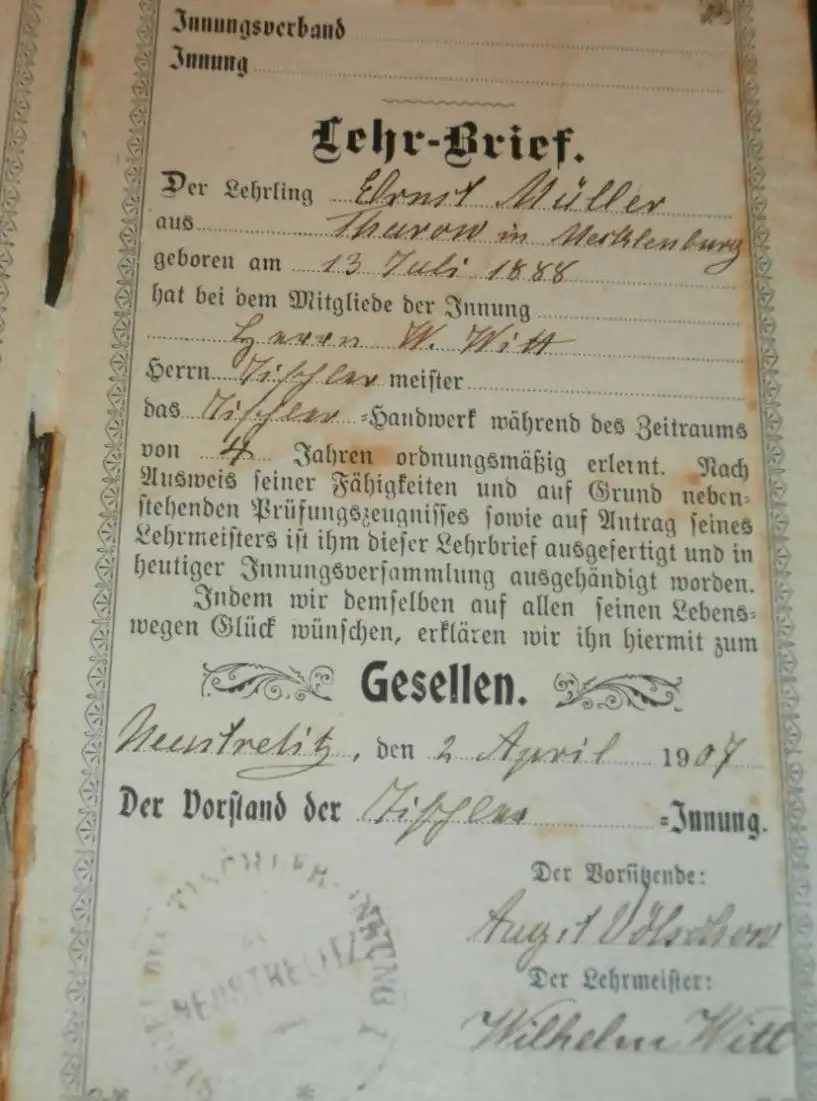 Innungsverband
Innung
Lehr-Brief.
Der Lehrling Ernst Müller
aus Thurow in Mecklenburg
geboren am 13 Juli 1888
hat bei dem Mitgliede der Innung
Herrn W. Witt
Herrn Tischler meister
das Tischler =Handwerk während des Zeitraums
von 4 Jahren ordnungsmäßig erlernt. Nach
Ausweis seiner Fähigkeiten und auf Grund neben=
stehenden Prüfungszeugnisses sowie auf Antrag seines
Lehrmeisters ist ihm dieser Lehrbrief ausgefertigt und in
heutiger Innungsversammlung ausgehändigt worden.
Indem wir demselben auf allen seinen Lebens=
wegen Glück wünschen, erklären wir ihn hiermit zum
Gesellen.
Neustrelitz, den 2 April 1907
Der Vorstand der Tischler =Innung.
Der Vorsitzende:
August Völschow
Der Lehrmeister:
Wilhelm Witt
TISCHLER-INNUNG
NEUSTRELITZ